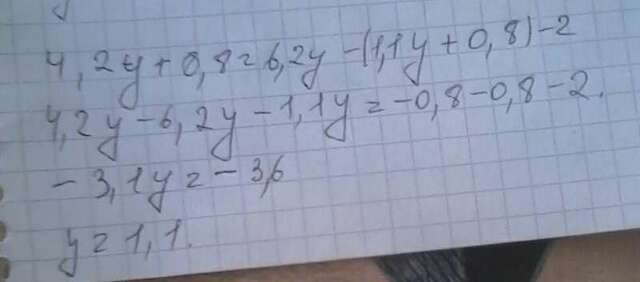 4,2y+0,8=6,2y-(1,1y+0,8)-2
4,2y-6,2y-1,1y=-0,8-0,8-2.
-3,1y=-3,6
y=1,1.